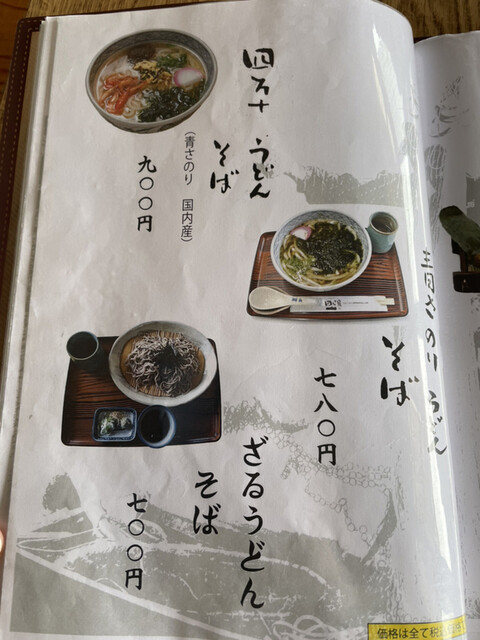 四万十 うどん
そば
（青さのり 国内産）
九〇〇円
青さのり うどん
そば
七八〇円
ざるうどん
そば
七〇〇円
価格は全て税